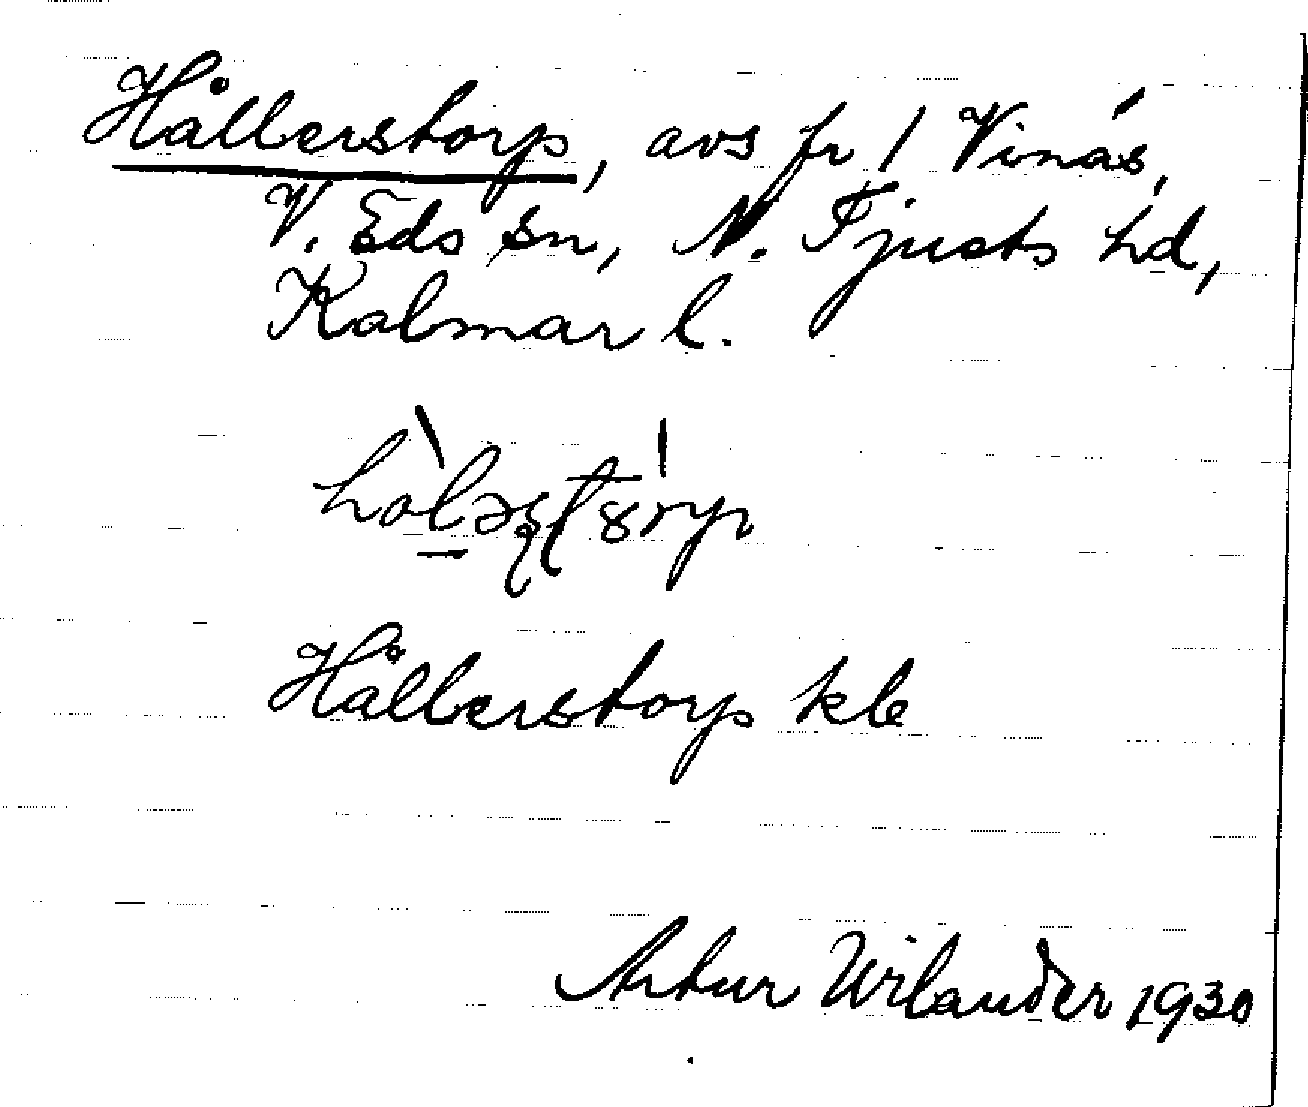 Hållerstorp, avs fr / Vinäs,
V. Eds sn, N. Tjusts hd,
Kalmar l.
Hållerstorp kle
Artur Wilander 1930